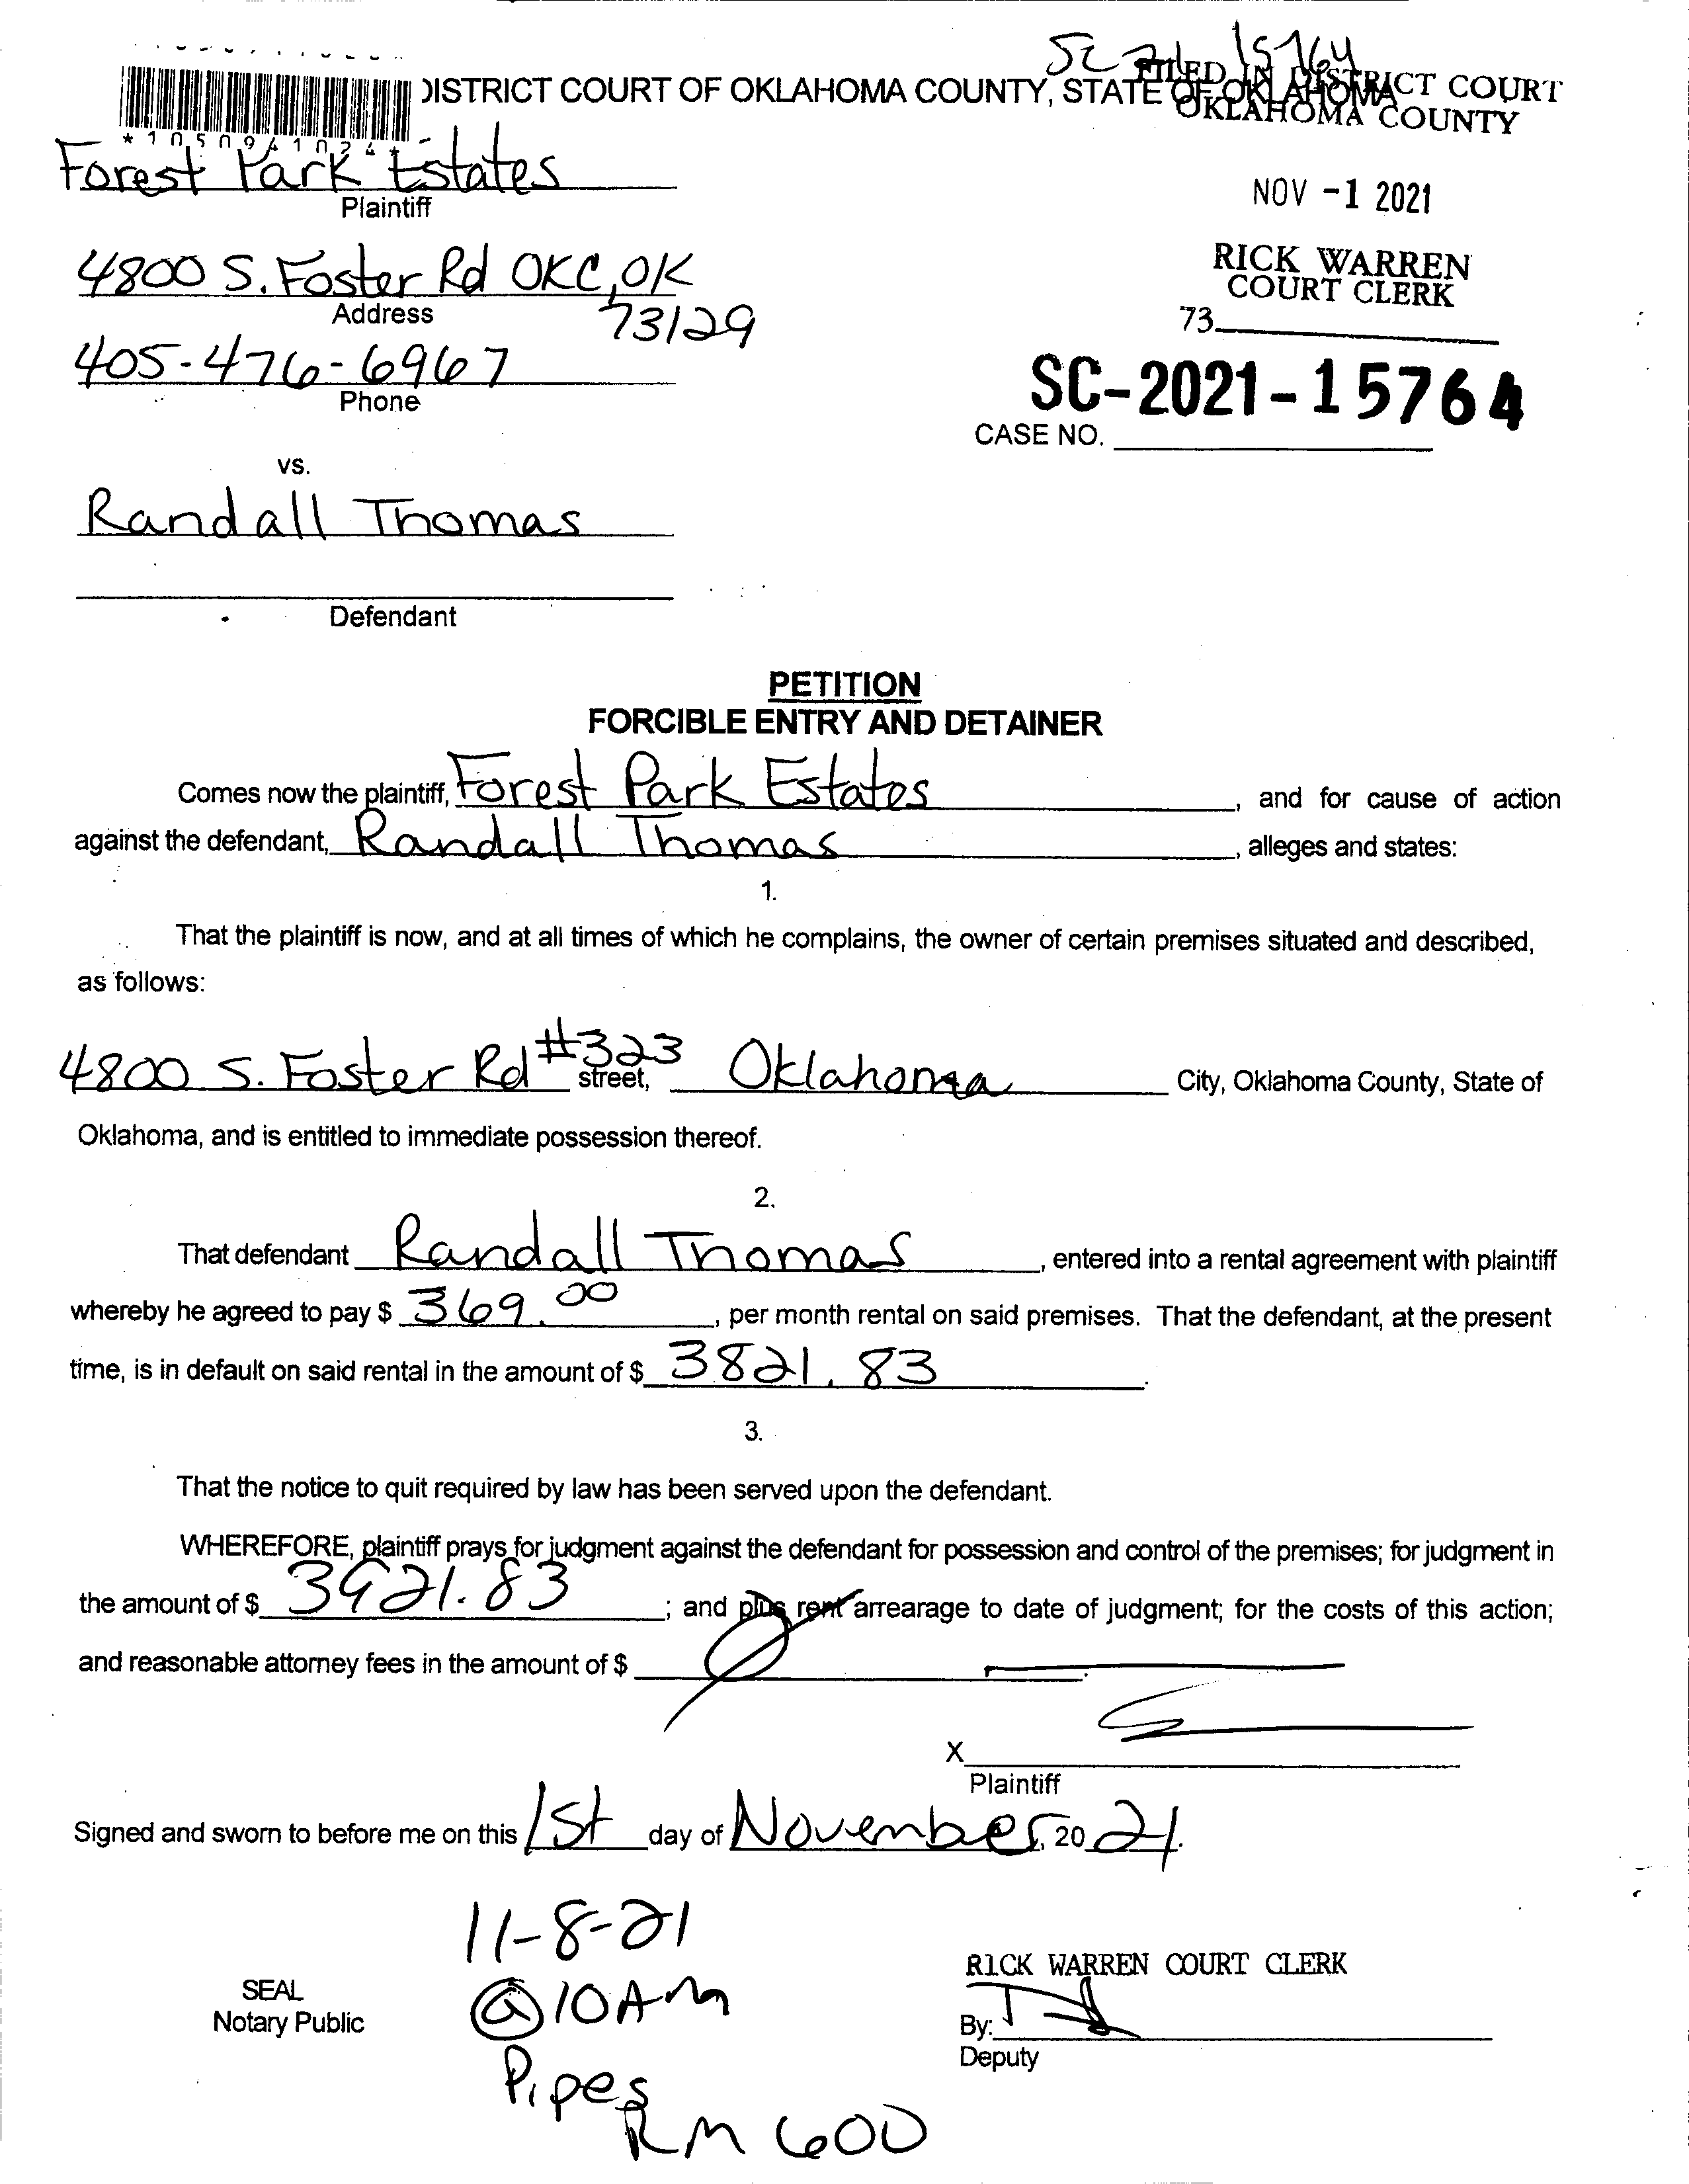 SC 21 15764
DISTRICT COURT OF OKLAHOMA COUNTY, STATE OF OKLAHOMA
FILED IN DISTRICT COURT
OKLAHOMA COUNTY
*1050941024*
Forest Park Estates
Plaintiff
NOV -1 2021
4800 S. Foster Rd OKC, OK
73129
Address
RICK WARREN
COURT CLERK
73
405-476-6967
Phone
SC-2021-15764
CASE NO.
vs.
Randall Thomas
Defendant
PETITION
FORCIBLE ENTRY AND DETAINER
Comes now the plaintiff, Forest Park Estates, and for cause of action
against the defendant, Randall Thomas, alleges and states:
1.
That the plaintiff is now, and at all times of which he complains, the owner of certain premises situated and described,
as follows:
4800 S. Foster Rd #323 street, Oklahoma City, Oklahoma County, State of
Oklahoma, and is entitled to immediate possession thereof.
2.
That defendant Randall Thomas, entered into a rental agreement with plaintiff
whereby he agreed to pay $ 369.00, per month rental on said premises. That the defendant, at the present
time, is in default on said rental in the amount of $ 3821.83.
3.
That the notice to quit required by law has been served upon the defendant.
WHEREFORE, plaintiff prays for judgment against the defendant for possession and control of the premises; for judgment in
the amount of $ 3921.83; and plus rent arrearage to date of judgment; for the costs of this action;
and reasonable attorney fees in the amount of $
X
Plaintiff
Signed and sworn to before me on this 1st day of November, 2021.
11-8-21
@ 10 AM
Pipes
RM 600
SEAL
Notary Public
RICK WARREN COURT CLERK
By:
Deputy